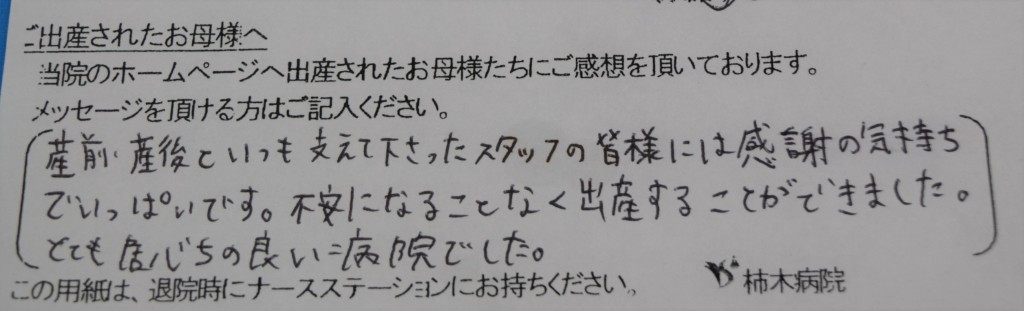 ご出産されたお母様へ
当院のホームページへ出産されたお母様たちにご感想を頂いております。
メッセージを頂ける方はご記入ください。
産前・産後といつも支えて下さったスタッフの皆様には感謝の気持ち
でいっぱいです。不安になることなく出産することができました。
とても居心ちの良い病院でした。
この用紙は、退院時にナースステーションにお持ちください。
柿木病院